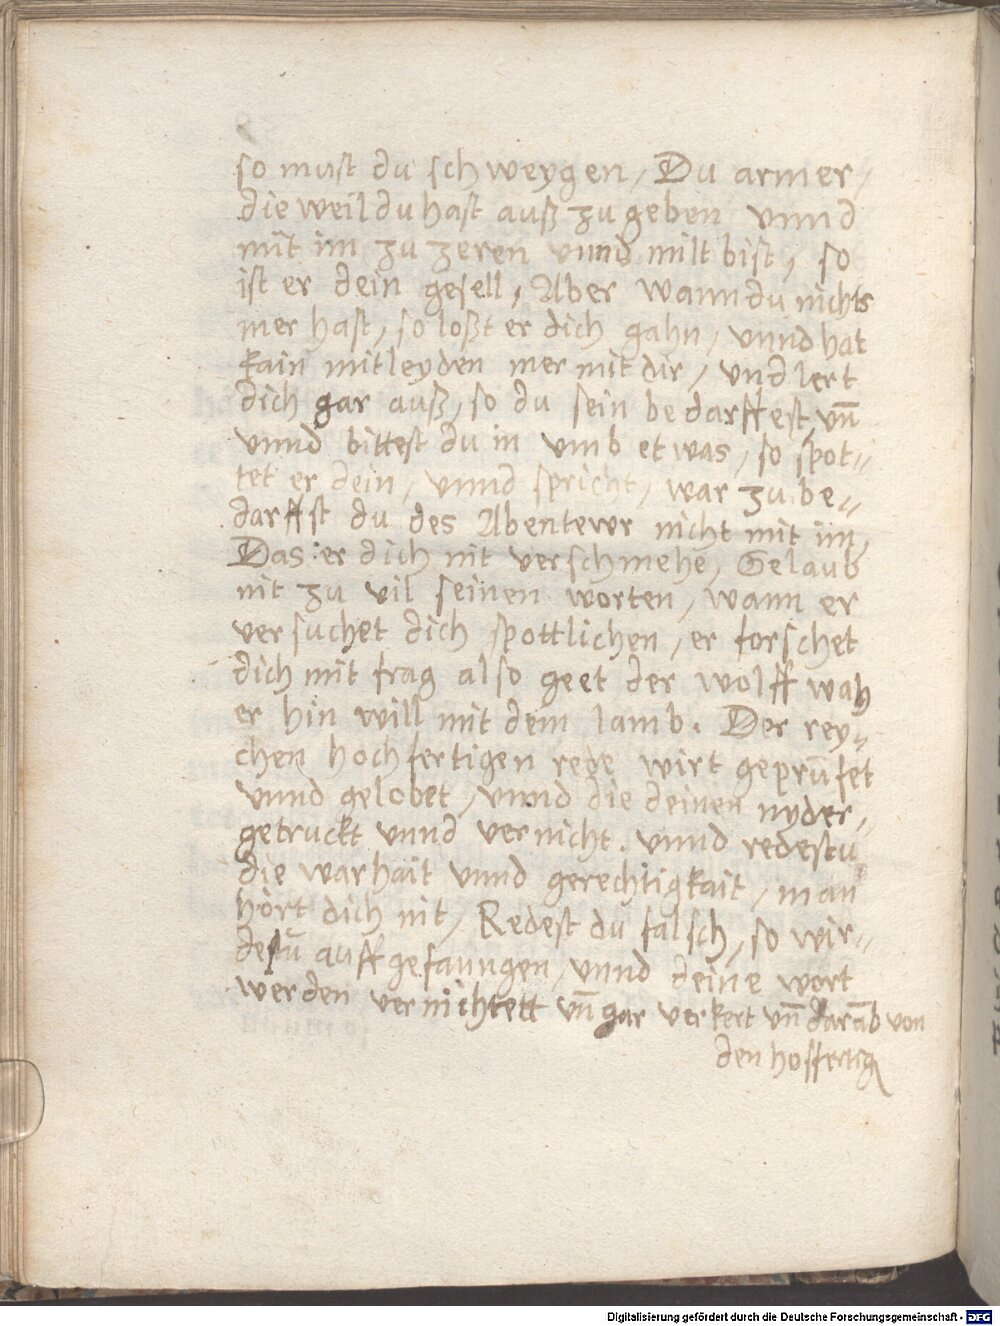 so must du schweygen, Du armer,
die weil du hast auß zu geben vnnd
mit im zu zeren vnnd milt bist, so
ist er dein gesell, Aber wann du nichts
mer hast, so loßt er dich gahn, vnnd hat
kain mitleyden mer mit dir, vnd lert
dich gar auß, so du sein bedarffest, vn̄
vnnd bittest du in vmb etwas, so spot⸗
tet er dein, vnnd spricht, war zu be⸗
darffst du des Abentewr nicht mit im,
Das er dich nit verschmehe, Gelaub
nit zu vil seinen worten, wann er
versuchet dich spottlichen, er forschet
dich mit frag also geet der wolff wah
er hin will mit dem lamb. Der rey⸗
chen hochfertigen rede wirt geprüfet
vnnd gelobet, vnnd die deinen nyder⸗
getruckt vnnd vernicht. vnnd redestu
die warhait vnnd gerechtigkait, man
hört dich nit, Redest du falsch, so wir⸗
destu auffgefanngen, vnnd deine wort
werden vernichtett vn̄ gar verkert vn̄ darab von
den hoffertig
Digitalisierung gefördert durch die Deutsche Forschungsgemeinschaft - DFG